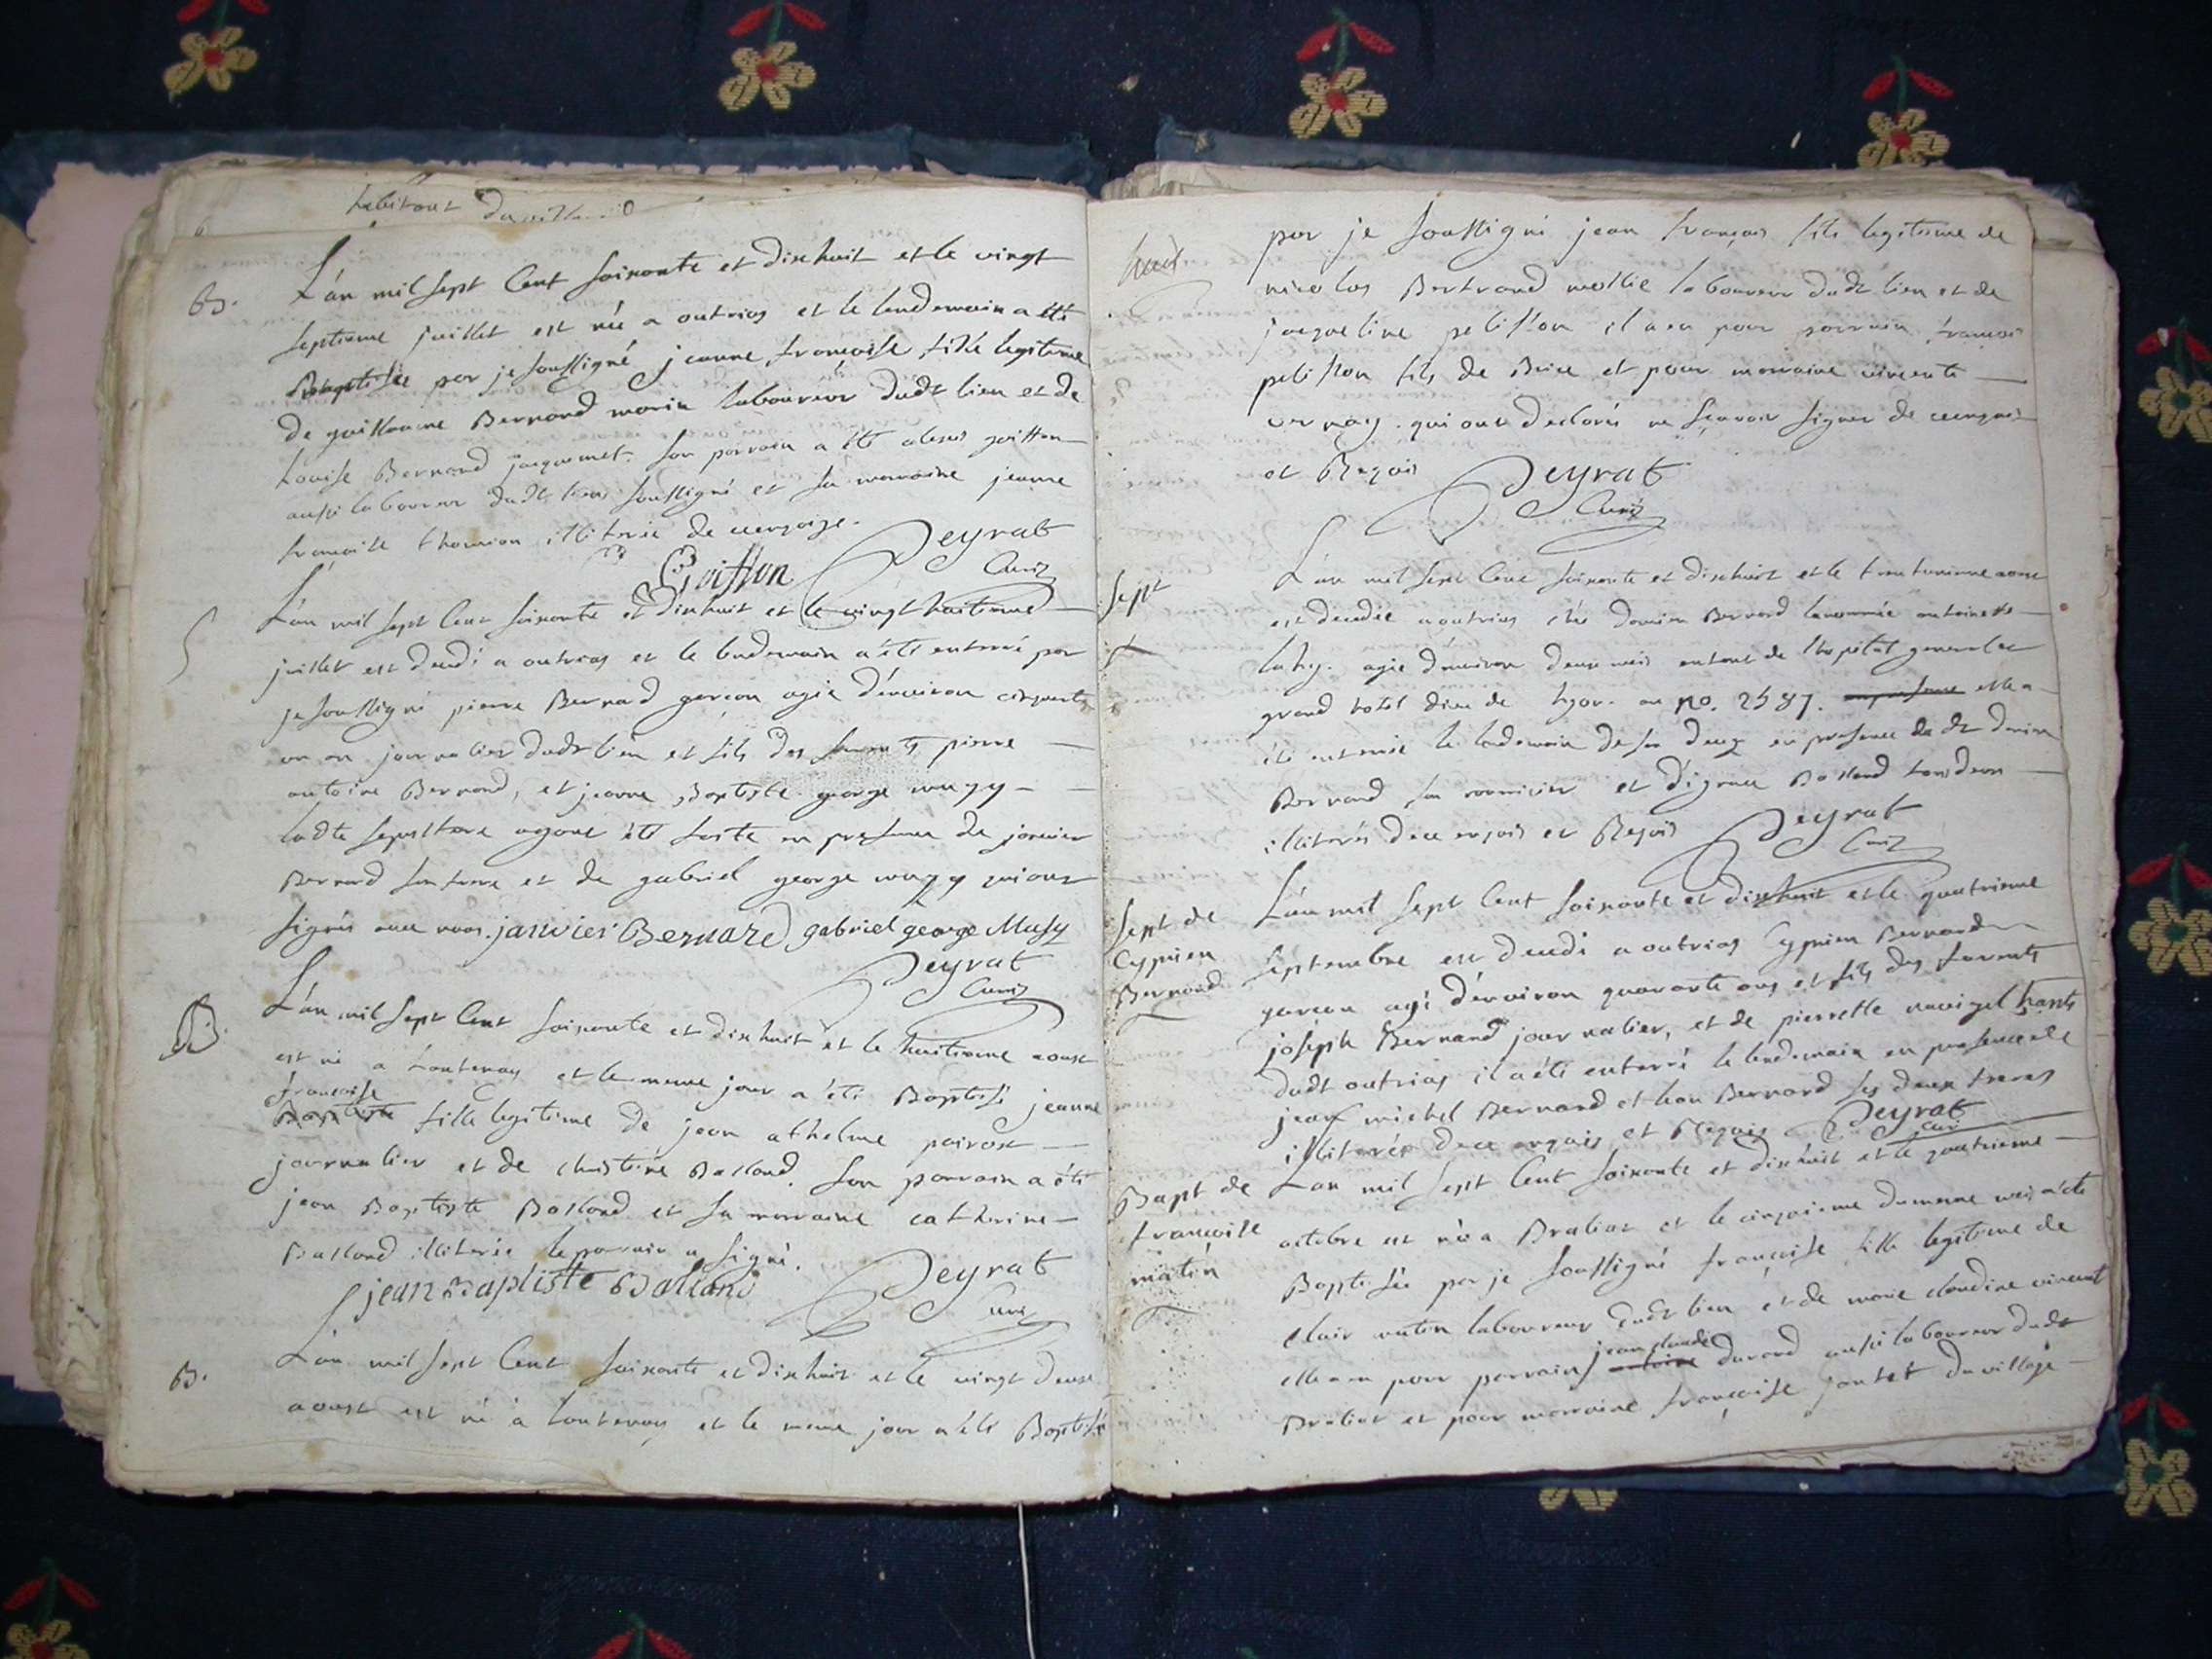 habitant du village
B.
L'an mil sept cent soixante et dixhuit et le vingt
septieme juillet est née a outriaz et le lendemain a été
Baptisée par je soussigné jeanne françoise fille legitime
de guillaume Bernard morin laboureur dudt lieu et de
Louise Bernard jacquemet. son parrain a été alexis goiffon
aussi laboureur dudt lieu soussigné et sa marraine jeanne
françoise thomion illiterée de ce enquise.
Goiffon
Peyrat
Curé
S
L'an mil sept cent soixante et dixhuit et le vingt huitieme
juillet est decedé a outriaz et le lendemain a été enterré par
je soussigné pierre Bernard garçon agé d'environ cinquante
un an journalier dudt lieu et fils des furents pierre
antoine Bernard, et jeanne Baptiste george muzy
ladte sepulture ayant été faite en presence de janvier
Bernard son frere et de gabriel george muzy qui ont
signés avec nous. janvier Bernard gabriel george Musy
Peyrat
Curé
B.
L'an mil sept cent soixante et dixhuit et le huitieme aoust
est né a Lantenay et le meme jour a été Baptisé jeanne
françoise
Baptiste fille legitime de jean athelme poirost
journalier et de christine Balland. son parrain a été
jean Baptiste Balland et sa marraine catherine
Balland illiterée le parrain a signé.
jean Baptiste Balland
Peyrat
Curé
B.
L'an mil sept cent soixante et dixhuit et le vingt deux
aoust est né à Lantenay et le meme jour a été Baptisé
par je soussigné jean françois fils legitime de
nicolas Bertrand mollie laboureur dudt lieu et de
jacqueline pelisson il a eu pour parrain françois
pelisson fils de Brice et pour marraine vincente
qui ont declarés ne sçavoir signer de ce enquis
et Requis
Peyrat
Curé
Sept
L'an mil sept cent soixante et dixhuit et le trentunieme aoust
est decedée a outriaz chés damien Bernard la nommée antoinette
agée d'environ deux mois enfant de l'hopital general et
grand hotel dieu de Lyon. au no. 2587. en presence elle a
été enterrée le lendemain de son deces en presence dudt damien
Bernard son nourricier et d'ignace Balland
illiterés de ce enquis et Requis
Peyrat
Curé
Sept de
Cyprien
Bernard
L'an mil sept cent soixante et dixhuit et le quatrieme
septembre est decedé a outriaz Cyprien Bernard
garcon agé d'environ quarante ans et fils des furents
joseph Bernard journalier, et de pierrette hants
dudt outriaz il a été enterré le lendemain en presence de
jean michel Bernard et leon Bernard ses deux freres
illiterés de ce enquis et Requis
Peyrat
curé
Bapt de
françoise
matin
L'an mil sept cent soixante et dixhuit et le quatrieme
octobre est née a Braliat et le cinquieme du meme mois a été
Baptisée par je soussigné françoise fille legitime de
clair matin laboureur dudt lieu et de marie claudine vincent
jean claude
elle a eu pour parrain antoine durand aussi laboureur dudt
Braliat et pour marraine françoise goutet du village